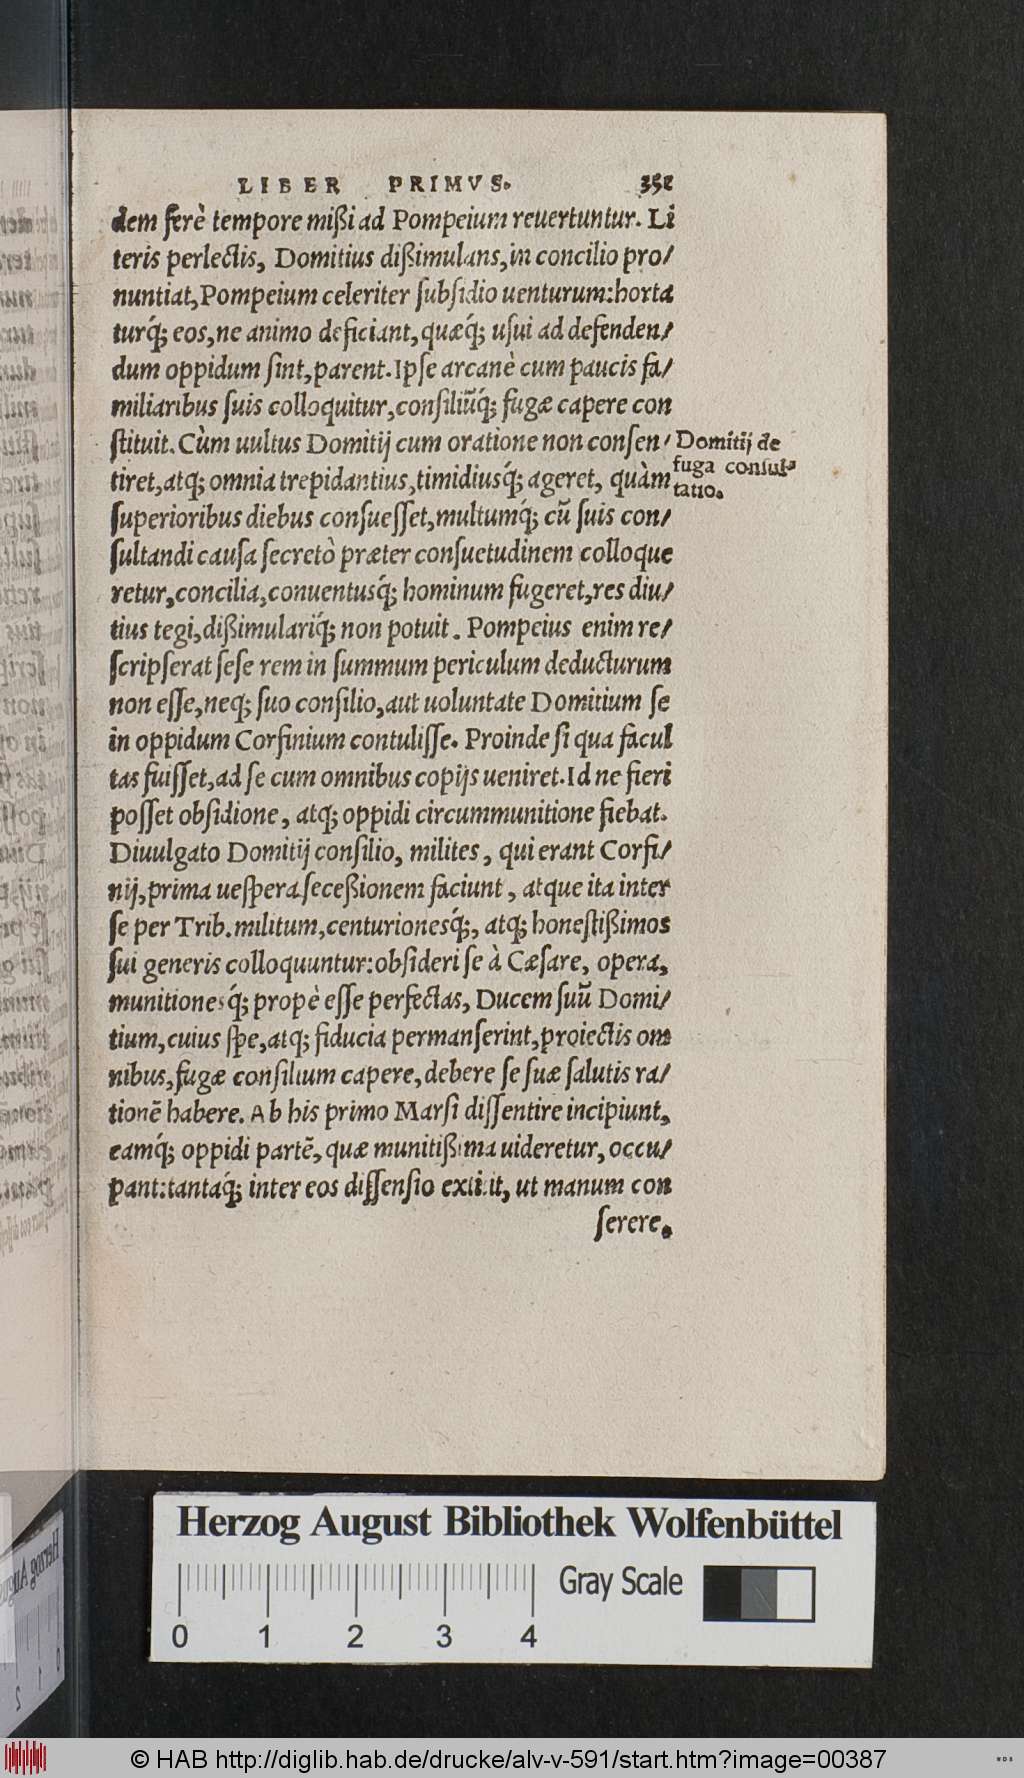 LIBER PRIMVS. 351
dem ferè tempore mißi ad Pompeium reuertuntur. Li
teris perlectis, Domitius dißimulans, in concilio pro/
nuntiat, Pompeium celeriter ſubſidio uenturum: horta
turq́; eos, ne animo deficiant, quæq́; uſui ad defenden/
dum oppidum ſint, parent. Ipſe arcanè cum paucis fa/
miliaribus ſuis colloquitur, conſiliū́q; fugæ capere con
ſtituit. Cùm uultus Domitij cum oratione non conſen/
tiret, atq; omnia trepidantius, timidiusq́; ageret, quàm
ſuperioribus diebus conſueſſet, multumq́; cū ſuis con/
ſultandi cauſa ſecretò præter conſuetudinem colloque
retur, concilia, conuentusq́; hominum fugeret, res diu/
tius tegi, dißimulariq́; non potuit. Pompeius enim re/
ſcripſerat ſeſe rem in ſummum periculum deducturum
non eſſe, neq; ſuo conſilio, aut uoluntate Domitium ſe
in oppidum Corfinium contuliſſe. Proinde ſi qua facul
tas fuiſſet, ad ſe cum omnibus copijs ueniret. Id ne fieri
poſſet obſidione, atq; oppidi circummunitione fiebat.
Diuulgato Domitij conſilio, milites, qui erant Corfi/
nij, prima ueſpera ſeceßionem faciunt, atque ita inter
ſe per Trib. militum, centurionesq́;, atq; honeſtißimos
ſui generis colloquuntur: obſideri ſe à Cæſare, opera,
munitionesq́; propè eſſe perfectas, Ducem ſuū Domi/
tium, cuius ſpe, atq; fiducia permanſerint, proiectis om
nibus, fugæ conſilium capere, debere ſe ſuæ ſalutis ra/
tionē habere. Ab his primo Marſi diſſentire incipiunt,
eamq́; oppidi partē, quæ munitißima uideretur, occu/
pant: tantaq́; inter eos diſſenſio extitit, ut manum con
ſerere.
Domitij de
fuga conſul-
tatio.
Herzog August Bibliothek Wolfenbüttel
Gray Scale
0 1 2 3 4
© HAB http://diglib.hab.de/drucke/alv-v-591/start.htm?image=00387